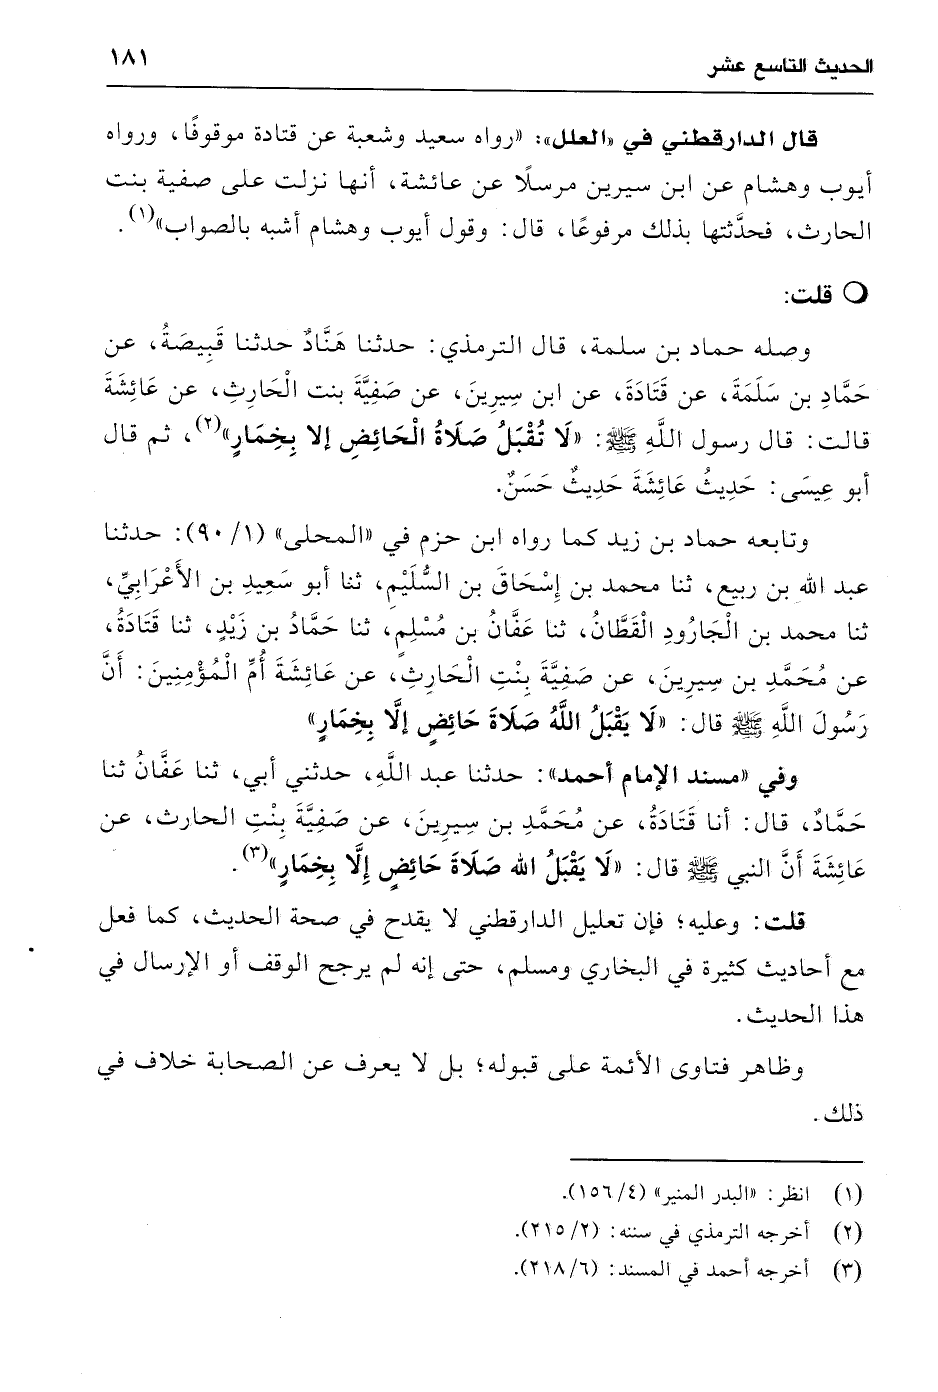 الحديث التاسع عشر ١٨١
قال الدارقطني في «العلل»: «رواه سعيد وشعبة عن قتادة موقوفًا، ورواه
أيوب وهشام عن ابن سيرين مرسلًا عن عائشة، أنها نزلت على صفية بنت
الحارث، فحدَّثتها بذلك مرفوعًا، قال: وقول أيوب وهشام أشبه بالصواب»(١).
○ قلت:
وصله حماد بن سلمة، قال الترمذي: حدثنا هَنَّادٌ حدثنا قَبِيصَةُ، عن
حَمَّادِ بن سَلَمَةَ، عن قَتَادَةَ، عن ابن سِيرِينَ، عن صَفِيَّةَ بنت الْحَارِثِ، عن عَائِشَةَ
قالت: قال رسول اللَّهِ ﷺ: «لَا تُقْبَلُ صَلَاةُ الْحَائِضِ إلا بِخِمَارٍ»(٢)، ثم قال
أبو عِيسَى: حَدِيثُ عَائِشَةَ حَدِيثٌ حَسَنٌ.
وتابعه حماد بن زيد كما رواه ابن حزم في «المحلى» (١/ ٩٠): حدثنا
عبد الله بن ربيع، ثنا محمد بن إِسْحَاقَ بن السُّلَيْمِ، ثنا أبو سَعِيدِ بن الأَعْرَابِيِّ،
ثنا محمد بن الْجَارُودِ الْقَطَّانُ، ثنا عَفَّانُ بن مُسْلِمٍ، ثنا حَمَّادُ بن زَيْدٍ، ثنا قَتَادَةُ،
عن مُحَمَّدِ بن سِيرِينَ، عن صَفِيَّةَ بِنْتِ الْحَارِثِ، عن عَائِشَةَ أُمِّ الْمُؤْمِنِينَ: أَنَّ
رَسُولَ اللَّهِ ﷺ قال: «لَا يَقْبَلُ اللَّهُ صَلَاةَ حَائِضٍ إلَّا بِخِمَارٍ»
وفي «مسند الإمام أحمد»: حدثنا عبد اللَّهِ، حدثني أبي، ثنا عَفَّانُ ثنا
حَمَّادٌ، قال: أنا قَتَادَةُ، عن مُحَمَّدِ بن سِيرِينَ، عن صَفِيَّةَ بِنْتِ الحارث، عن
عَائِشَةَ أَنَّ النبي ﷺ قال: «لَا يَقْبَلُ الله صَلَاةَ حَائِضٍ إِلَّا بِخِمَارٍ»(٣).
قلت: وعليه؛ فإن تعليل الدارقطني لا يقدح في صحة الحديث، كما فعل
مع أحاديث كثيرة في البخاري ومسلم، حتى إنه لم يرجح الوقف أو الإرسال في
هذا الحديث.
وظاهر فتاوى الأئمة على قبوله؛ بل لا يعرف عن الصحابة خلاف في
ذلك.
(١) انظر: «البدر المنير» (٤/ ١٥٦).
(٢) أخرجه الترمذي في سننه: (٢/ ٢١٥).
(٣) أخرجه أحمد في المسند: (٦/ ٢١٨).